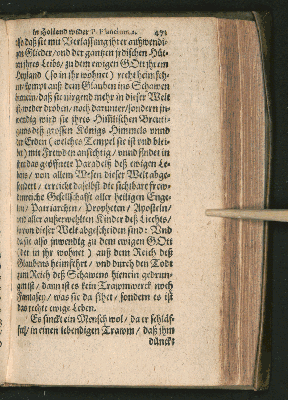 in Holland wider P. Plancium. 471
ist daß sie mit Verlassung ihrer außwendi-
gen Glieder / und der gantzen jrdischen Hüt-
ihres Leibs / zu dem ewigen GOtt ihrem
Heyland (so in ihr wohnet) recht heimkeh-
kompt auß dem Glauben ins Schawen
daß sie nirgend mehr in dieser Welt
weder droben / noch darunter / sondern in-
wendig wird sie jhres Himlischen Breuti-
gams deß grossen Königs Himmels vnnd
der Erden (welches Tempel sie ist vnd blei-
bet) mit Frewden ansichtig / vnnd findet in
das geöffnete Paradeiß deß ewigen Le-
bens / von allem Wesen dieser Welt abge-
sondert / erreicht daselbst die sichtbare frew-
denreiche Gesellschafft aller heiligen Enge-
len / Patriarchen / Propheten / Aposteln /
vnd aller außerwehlten Kinder deß Liechts /
so von dieser Welt abgescheiden sind: Vnd
daß sie also jnwendig zu dem ewigen GOtt
(der in ihr wohnet) auß dem Reich deß
Glaubens heimkehrt / vnd durch den Todt
zum Reich deß Schawens hienein gedrun-
gen ist / dann ist es kein Trawmwerck noch
Fantasey / was sie da sihet / sondern es ist
das rechte ewige Leben.
Es sinckt ein Mensch wol / da er schläf-
fet / in einen lebendigen Trawm / daß ihm
dünckt